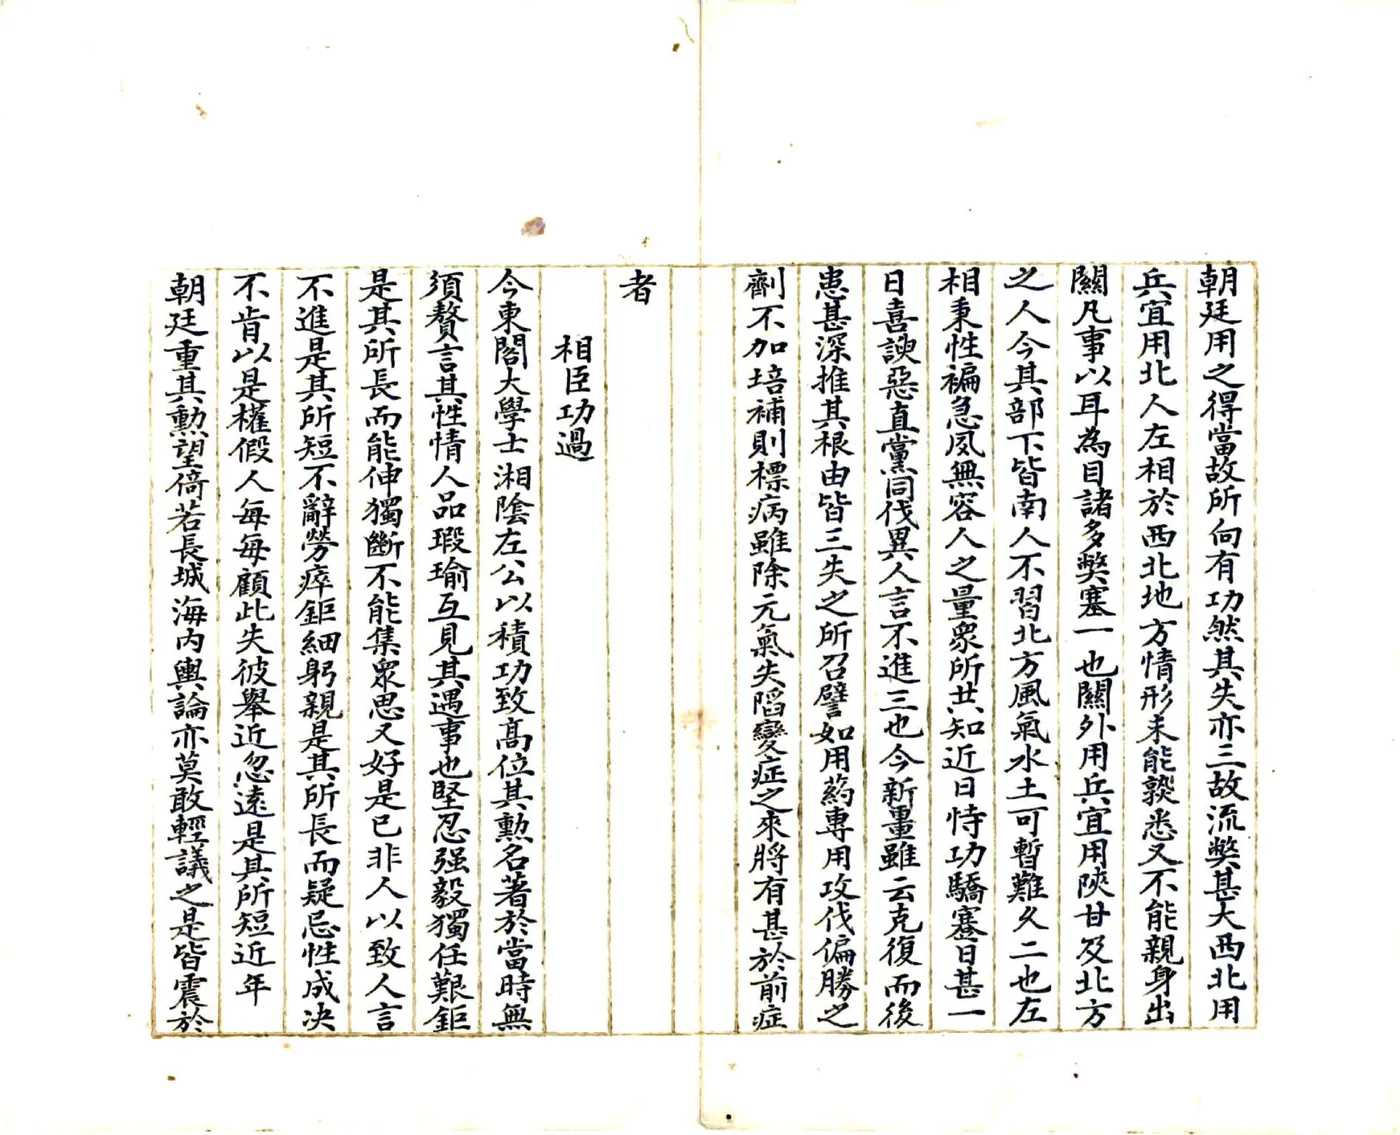 朝廷用之得當故所向有功然其失亦三故流獘甚大西北用
兵宜用北人左相於西北地方情形未能熟悉又不能親身出
關凡事以耳為目諸多獘塞一也關外用兵宜用陝甘及北方
之人今其部下皆南人不習北方風氣水土可暫難久二也左
相秉性褊急夙無容人之量衆所共知近日恃功驕蹇日甚一
日喜諛惡直黨同伐異人言不進三也今新疆雖云克復而後
患甚深推其根由皆三失之所召譬如用葯專用攻伐偏勝之
劑不加培補則標病雖除元氣失陷變症之來將有甚於前症
者
相臣功過
今東閣大學士湘陰左公以積功致高位其勳名著於當時無
須贅言其性情人品瑕瑜互見其遇事也堅忍强毅獨任艱鉅
是其所長而能伸獨斷不能集衆思又好是已非人以致人言
不進是其所短不辭勞瘁鉅細躬親是其所長而疑忌性成决
不肯以是權假人每每顧此失彼舉近忽遠是其所短近年
朝廷重其勳望倚若長城海內輿論亦莫敢輕議之是皆震於